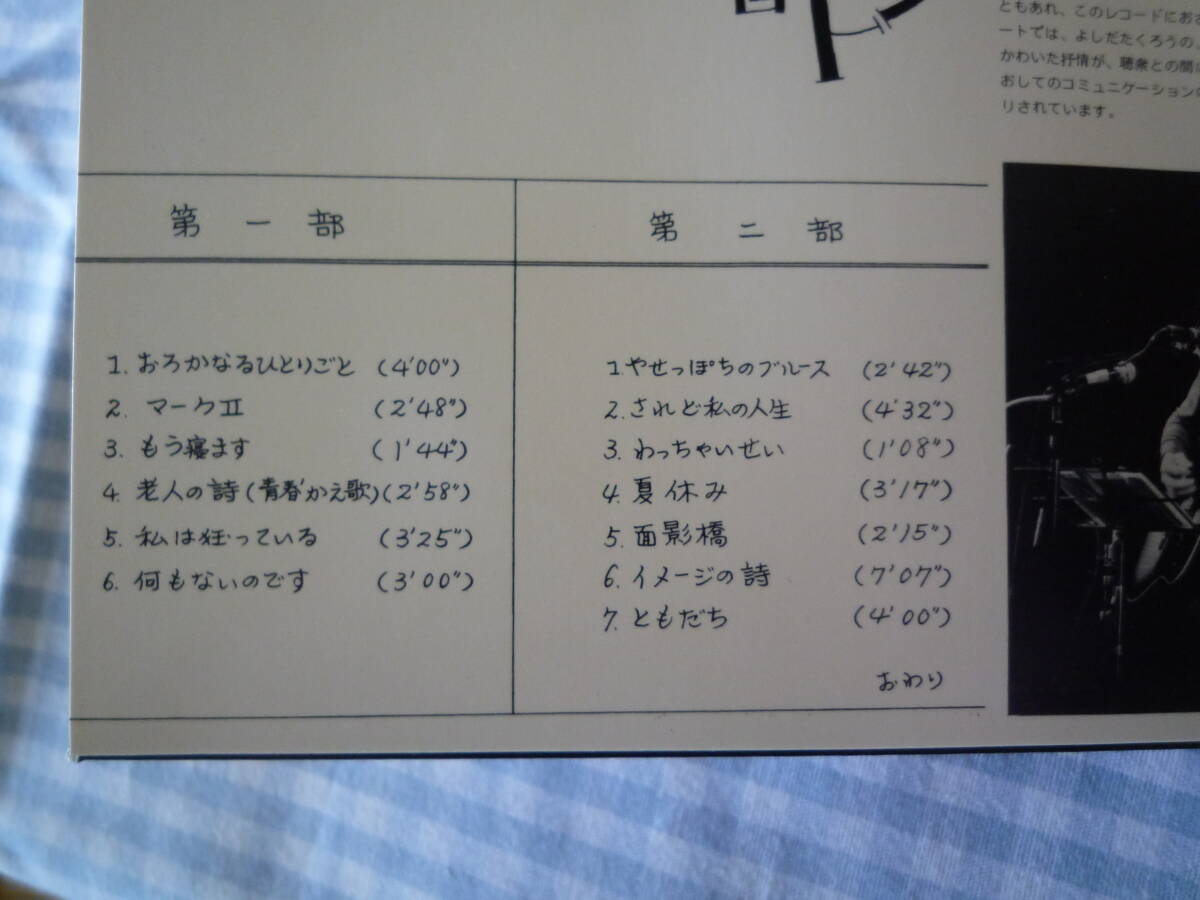 ともあれ、このレコードにおさ
ートでは、よしだたくろうの
かわいた抒情が、聴衆との間に
おしてのコミュニケーションの
りされています。
第一部
1. おろかなるひとりごと (4'00")
2. マークⅡ (2'48")
3. もう寝ます (1'44")
4. 老人の詩(青春かえ歌)(2'58")
5. 私は狂っている (3'25")
6. 何もないのです (3'00")
第二部
1. やせっぽちのブルース (2'42")
2. されど私の人生 (4'32")
3. わっちゃいせい (1'08")
4. 夏休み (3'17")
5. 面影橋 (2'15")
6. イメージの詩 (7'07")
7. ともだち (4'00")
おわり